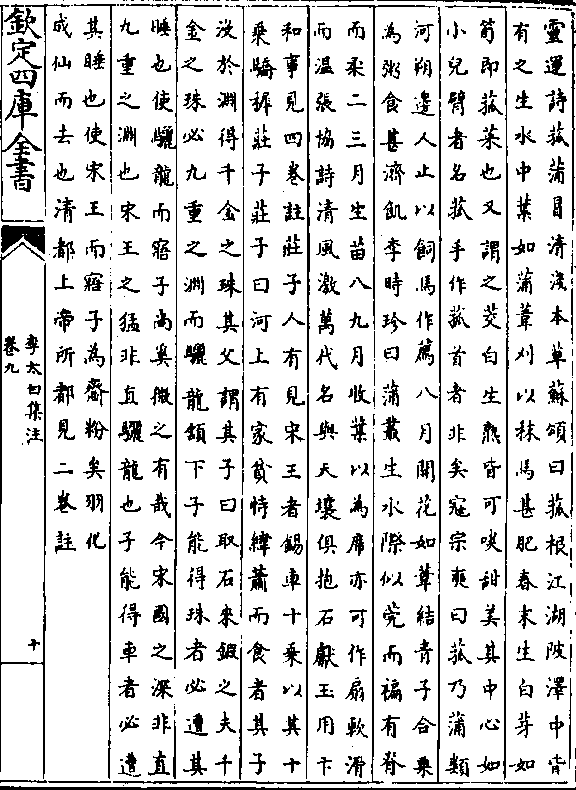 靈運詩菰蒲冒清淺本草蘇頌曰菰根江湖陂澤中皆
有之生水中葉如蒲葦刈以秣馬甚肥春末生白芽如
筍即菰菜也又謂之茭白生熟皆可啖甜美其中心如
小兒臂者名菰手作菰首者非矣寇宗奭曰菰乃蒲類
河朔邊人止以飼馬作薦八月開花如葦結青子合粟
為粥食甚濟飢李時珍曰蒲叢生水際似莞而褊有脊
而柔二三月生苗八九月收葉以為席亦可作扇軟滑
而温張協詩清風激萬代名與天壤俱抱石獻玉用卞
和事見四卷註莊子人有見宋王者錫車十乗以其十
乗驕穉莊子莊子曰河上有家貧恃緯蕭而食者其子
沒於淵得千金之珠其父謂其子曰取石來鍜之夫千
金之珠必九重之淵而驪龍頷下子能得珠者必遭其
睡也使驪龍而寤子尚奚微之有哉今宋國之深非直
九重之淵也宋王之猛非直驪龍也子能得車者必遭
其睡也使宋王而寤子為齎粉矣羽化
成仙而去也清都上帝所都見二卷註
欽定四庫全書
李太白集注
卷九
十